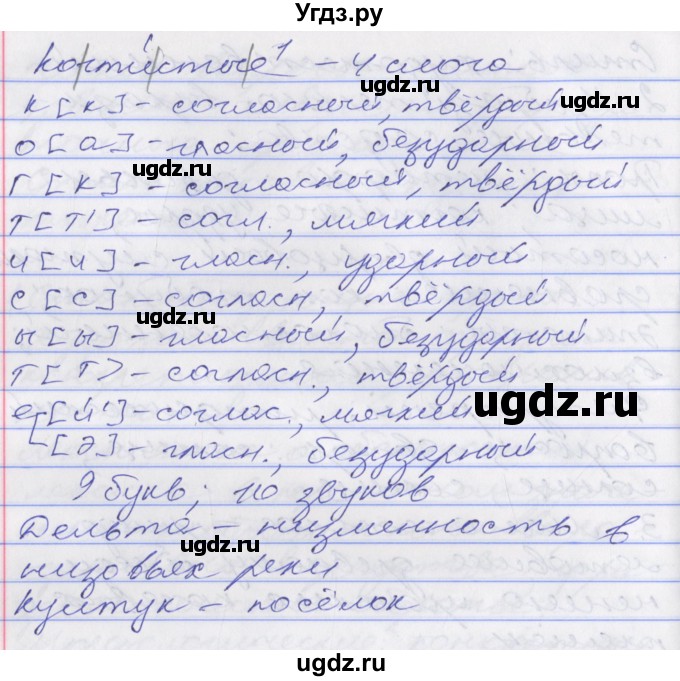 Угдз.ру
когтистые¹ – 4 слога
к [к] – согласный, твёрдый
ugdz.ru
о [а] – гласный, безударный
ugdz.ru
г [к] – согласный, твёрдый
т [т'] – согл., мягкий
ugdz.ru
и [и] – гласн., ударный
с [с] – согласн, твёрдый
ugdz.ru
ы [ы] – гласный, безударный
т [т> – согласн., твёрдый
е [й'] – соглас., мягкий
ugdz.ru
[э] – гласн., безударный
9 букв; 10 звуков
Дельта – низменность в
ugdz.ru
низовьях реки
Култук – посёлок
ugdz.ru